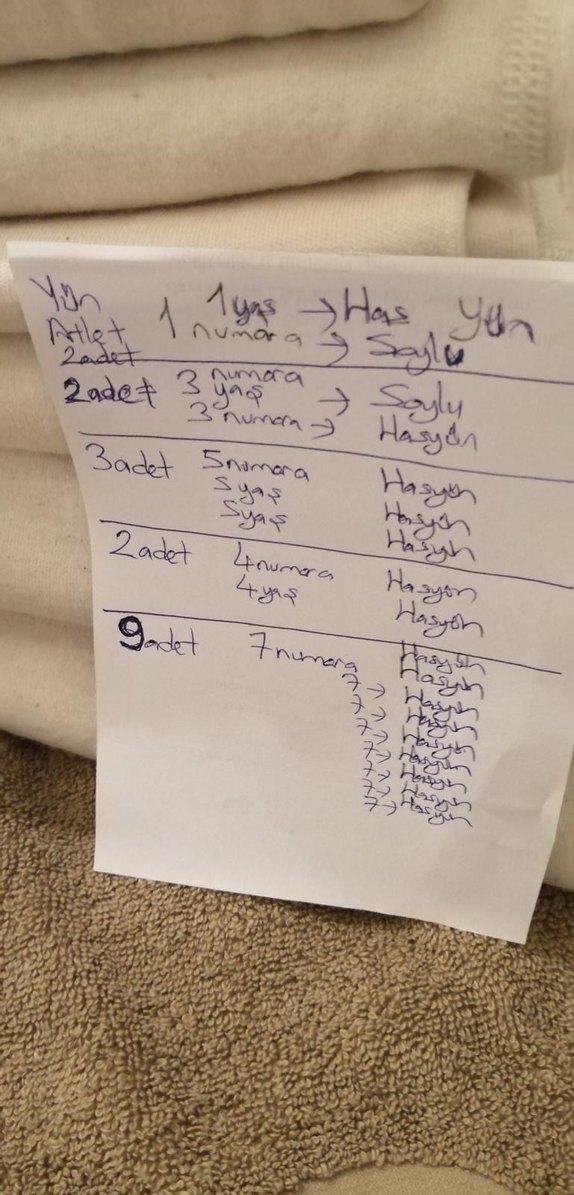 Yün 1yaş → Has Yün
Atlet 1 numara → Soylu
2adet
2adet 3 numara
yaş → Soylu
3 numara → Hasyün
3adet 5numara Hasyün
5yaş Hasyün
5yaş Hasyün
2adet 4numara Hasyün
4yaş Hasyün
9adet 7numara Hasyün
Hasyün
7 → Hasyün
7 → Hasyün
7 → Hasyün
7 → Hasyün
7 → Hasyün
7 → Hasyün
7 → Hasyün